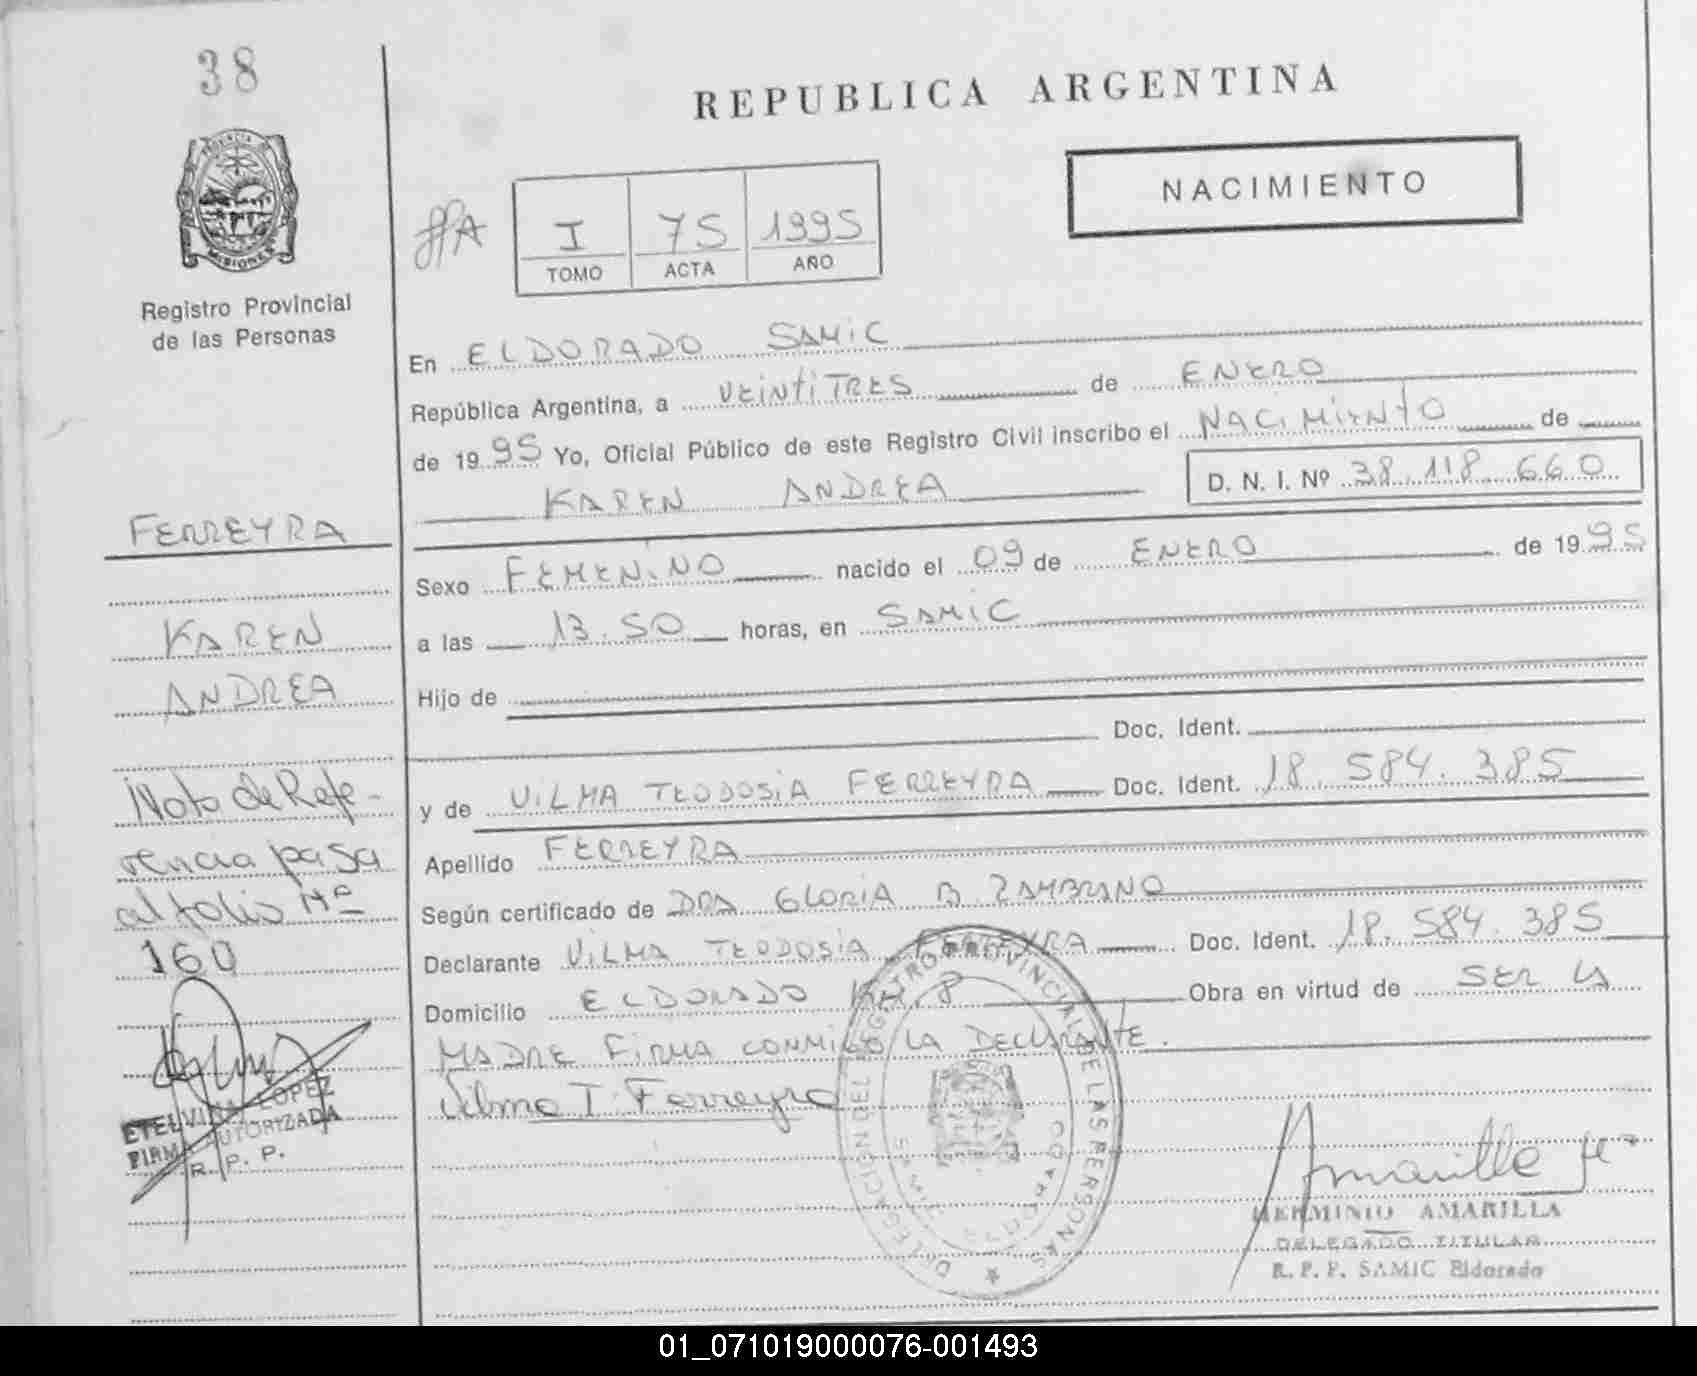 38
REPUBLICA ARGENTINA
NACIMIENTO
PROVINCIA
MISIONES
I 75 1995
TOMO ACTA AÑO
Registro Provincial
de las Personas
En ELDORADO SAMIC
República Argentina, a VEINTITRES de ENERO
de 1995 Yo, Oficial Público de este Registro Civil inscribo el NACIMIENTO de
KAREN ANDREA D. N. I. Nº 38.118.660
FERREYRA
KAREN
ANDREA
Sexo FEMENINO nacido el 09 de ENERO de 1995
a las 13.50 horas, en SAMIC
Hijo de
Doc. Ident.
y de VILMA TEODOSIA FERREYRA Doc. Ident. 18.584.385
Apellido FERREYRA
Según certificado de DRA GLORIA B. ZAMBRANO
Declarante VILMA TEODOSIA FERREYRA Doc. Ident. 18.584.385
Domicilio ELDORADO KM. 8 Obra en virtud de SER LA
MADRE FIRMA CONMIGO LA DECLARANTE.
Vilma T. Ferreyra
Nota de Refe-
rencia pasa
al folio Nº
160
ETELVINA LOPEZ
FIRMA AUTORIZADA
R. P. P.
DELEGACION DEL REGISTRO PROVINCIAL DE LAS PERSONAS
Amarilla
HERMINIO AMARILLA
DELEGADO TITULAR
R. P. P. SAMIC Eldorado
01_071019000076-001493